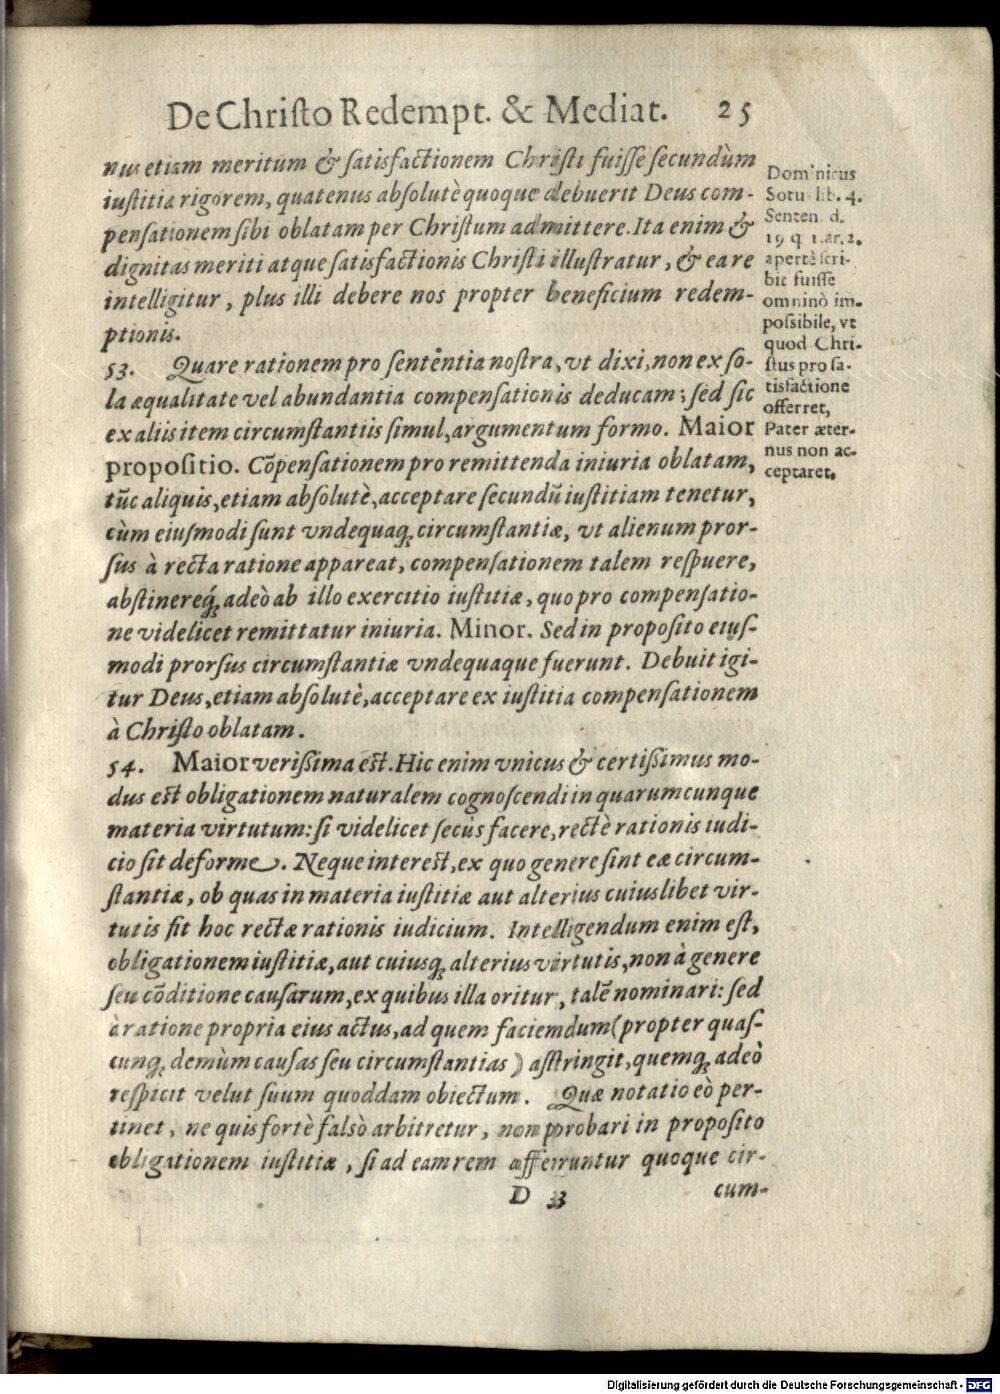 De Chriſto Redempt. & Mediat. 25
nus etiam meritum & ſatisfactionem Chriſti fuiſſe ſecundùm
iuſtitiæ rigorem, quatenus abſolutè quoque debuerit Deus com-
penſationem ſibi oblatam per Chriſtum admittere. Ita enim &
dignitas meriti atque ſatisfactionis Chriſti illuſtratur, & ea re
intelligitur, plus illi debere nos propter beneficium redem-
ptionis.
53. Quare rationem pro ſententia noſtra, vt dixi, non ex ſo-
la æqualitate vel abundantia compenſationis deducam; ſed ſic
ex aliis item circumſtantiis ſimul, argumentum formo. Maior
propoſitio. Cōpenſationem pro remittenda iniuria oblatam,
tūc aliquis, etiam abſolutè, acceptare ſecundū iuſtitiam tenetur,
cùm eiuſmodi ſunt vndequaq; circumſtantiæ, vt alienum pror-
ſus à recta ratione appareat, compenſationem talem reſpuere,
abſtinereq́; adeò ab illo exercitio iuſtitiæ, quo pro compenſatio-
ne videlicet remittatur iniuria. Minor. Sed in propoſito eiuſ-
modi prorſus circumſtantiæ vndequaque fuerunt. Debuit igi-
tur Deus, etiam abſolutè, acceptare ex iuſtitia compenſationem
à Chriſto oblatam.
54. Maior veriſsima eſt. Hic enim vnicus & certiſsimus mo-
dus eſt obligationem naturalem cognoſcendi in quarumcunque
materia virtutum: ſi videlicet ſecùs facere, rectè rationis iudi-
cio ſit deforme. Neque intereſt, ex quo genere ſint eæ circum-
ſtantiæ, ob quas in materia iuſtitiæ aut alterius cuiuslibet vir-
tutis fit hoc rectæ rationis iudicium. Intelligendum enim eſt,
obligationem iuſtitiæ, aut cuiusq; alterius virtutis, non à genere
ſeu cōditione cauſarum, ex quibus illa oritur, talē nominari: ſed
à ratione propria eius actus, ad quem faciemdum (propter quaſ-
cunq; demùm cauſas ſeu circumſtantias) aſtringit, quemq; adeò
reſpicit velut ſuum quoddam obiectum. Quæ notatio eò per-
tinet, ne quis fortè falsò arbitretur, non probari in propoſito
obligationem iuſtitiæ, ſi ad eam rem afferuntur quoque cir-
D 33 cum-
Dominicus
Sotu lib. 4.
Senten d.
19 q 1. ar. 2.
apertè ſcri-
bit fuiſſe
omninò im-
poſsibile, vt
quod Chri-
ſtus pro ſa-
tisfactione
offerret,
Pater æter-
nus non ac-
ceptaret.
Digitalisierung gefördert durch die Deutsche Forschungsgemeinschaft - DFG